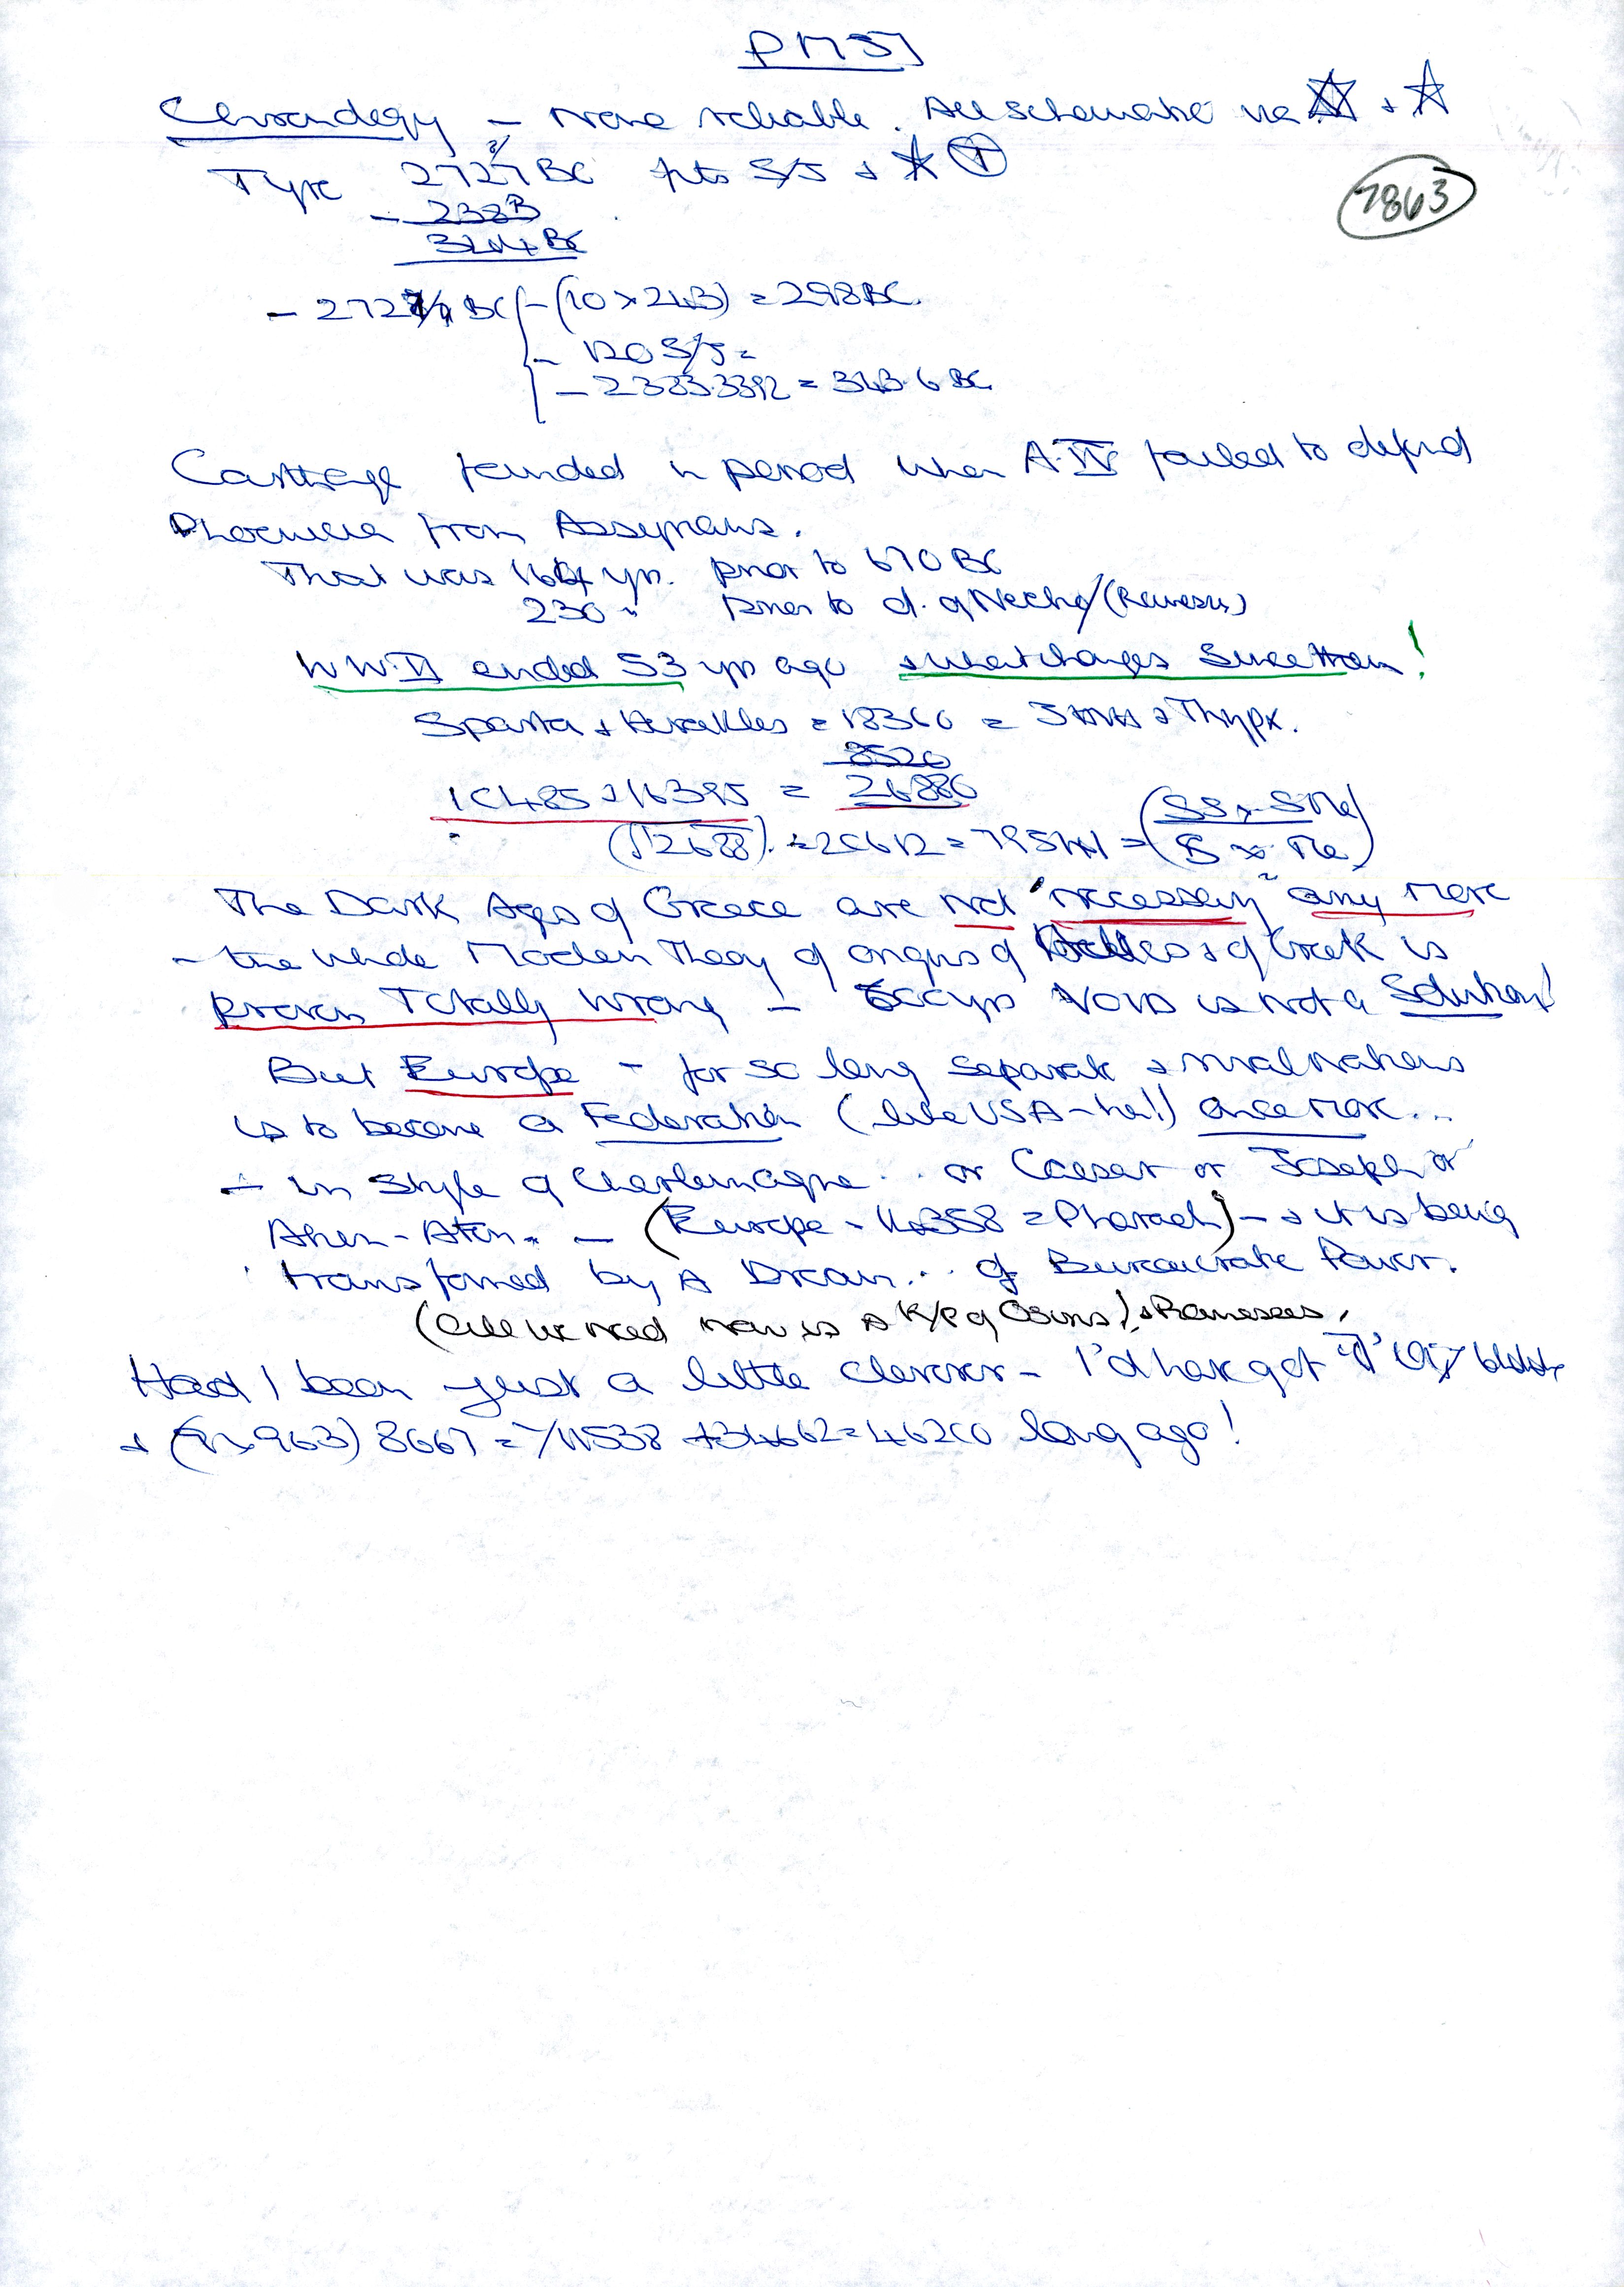 PMSJ
Chronology - None reliable. All schematic via ✡ + ☆
7863
Tyre 2727 BC pts S/J +
- 2383
344 BC
- 2727/4 BC - (10 x 243) = 298 BC.
- 120 S/J =
- 2383.3392 = 343.6 BC
Carthage founded in period when A.IV failed to defend
Phoenicia from Assyrians.
That was 164 yrs. prior to 670 BC
230 " prior to d. of Necho/(Rameses)
WW.II ended 53 yrs ago + what changes since then!
Sparta + Herakles = 18360 =
8520
10485 + 16395 = 26880
The Dark Ages of Greece are not "necessary" any more
- the whole Modern Theory of origins of & of Greek is
proven Totally wrong - 500 yrs VOID is not a Solution!
But Europe - for so long separate & rival nations
is to become a Federation (like USA - ha!) once more...
- in style of Charlemagne.. or Caesar or Joseph or
Akhen-Aten. - (Europe - 11x358 = Pharaoh) - & it is being
transformed by A Dream... of Bureaucratic Power.
(All we need now is a K/P of Osiris!) & Rameses,
Had I been just a little cleverer - I'd have got
+ (9 x 963) 8667 = 11538 + 34662 = 46200 long ago!